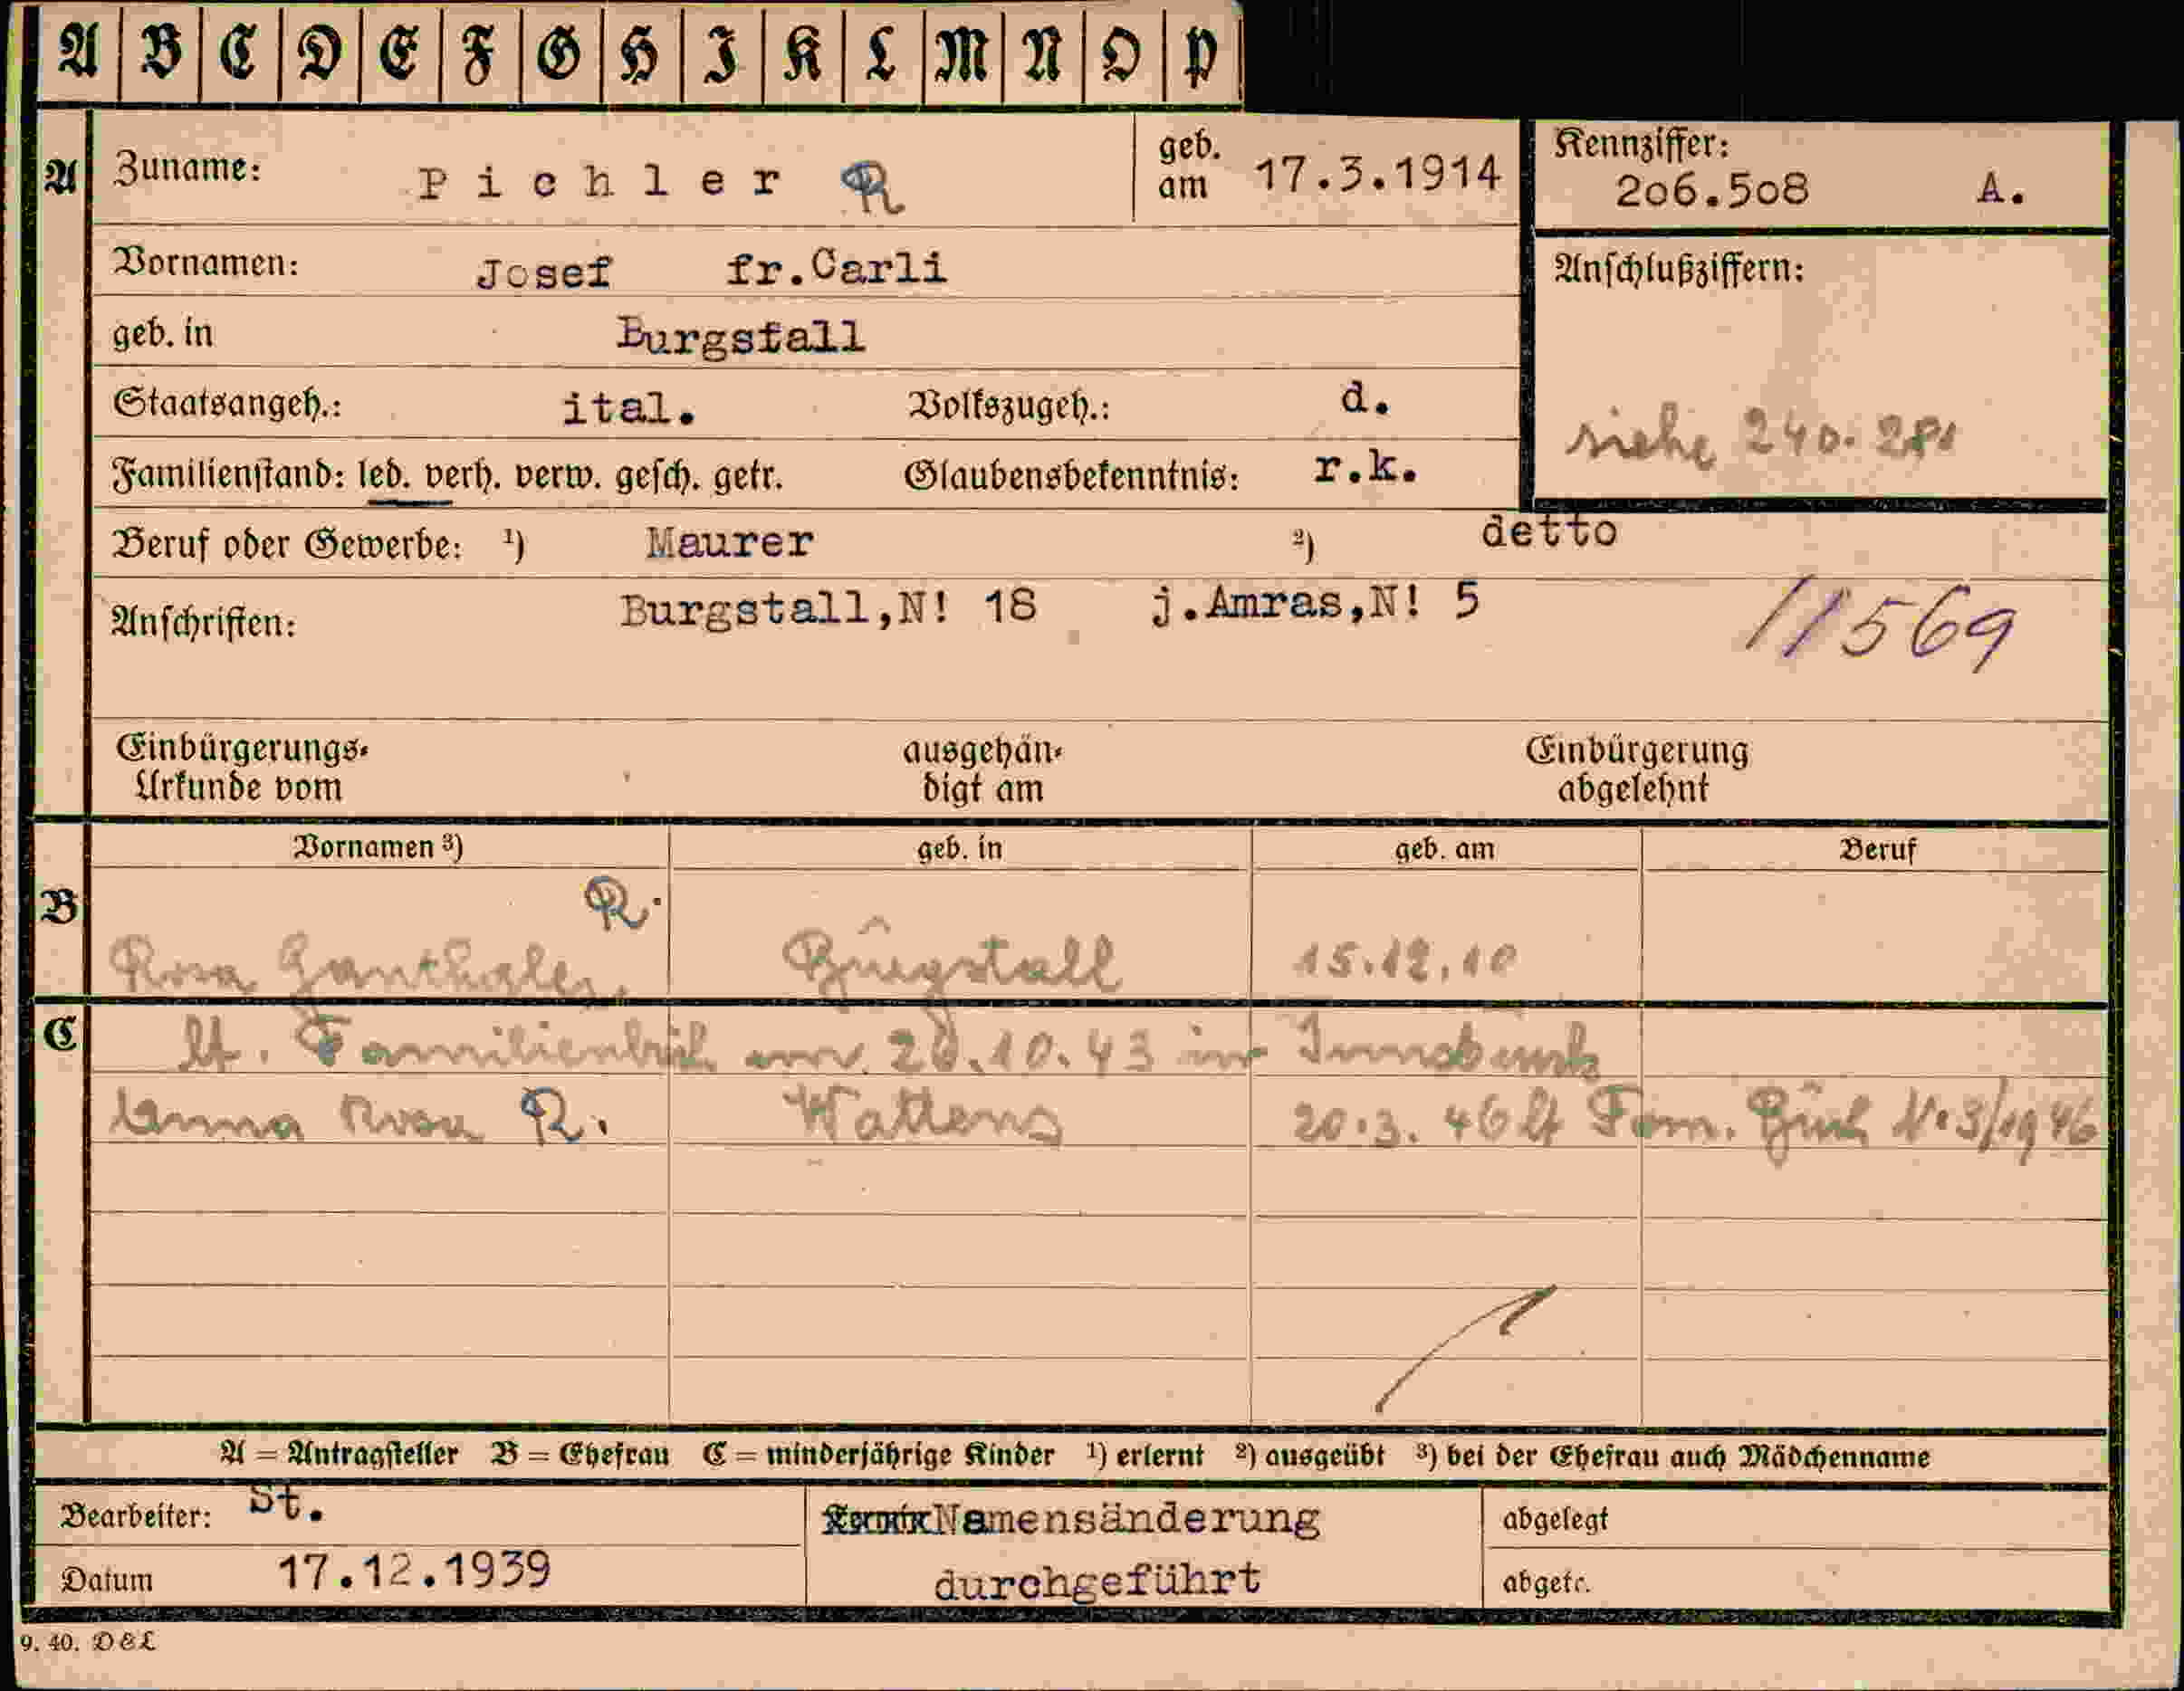 A B C D E F G H I K L M N O P
A Zuname: Pichler R geb. am 17.3.1914
Kennziffer: 206.508 A.
Vornamen: Josef fr.Carli
Anschlußziffern:
geb. in Burgstall
Staatsangeh.: ital. Volkszugeh.: d.
siehe 240.281
Familienstand: led. verh. verw. gesch. getr. Glaubensbekenntnis: r.k.
Beruf oder Gewerbe: 1) Maurer 2) detto
Anschriften: Burgstall,N! 18 j.Amras,N! 5 11569
Einbürgerungs-Urkunde vom ausgehän-digt am Einbürgerung abgelehnt
Vornamen 3) geb. in geb. am Beruf
B R.
Rosa Ganthaler Burgstall 15.12.10
C lt. Familienbuch am 20.10.43 in Innsbruck
Anna Rosa R. Wattens 20.3.46 lt Fam. Buch Nr 3/1946
A = Antragsteller B = Ehefrau C = minderjährige Kinder 1) erlernt 2) ausgeübt 3) bei der Ehefrau auch Mädchenname
Bearbeiter: St. Namensänderung abgelegt
Datum 17.12.1939 durchgeführt abgetr.
9. 40. D&L